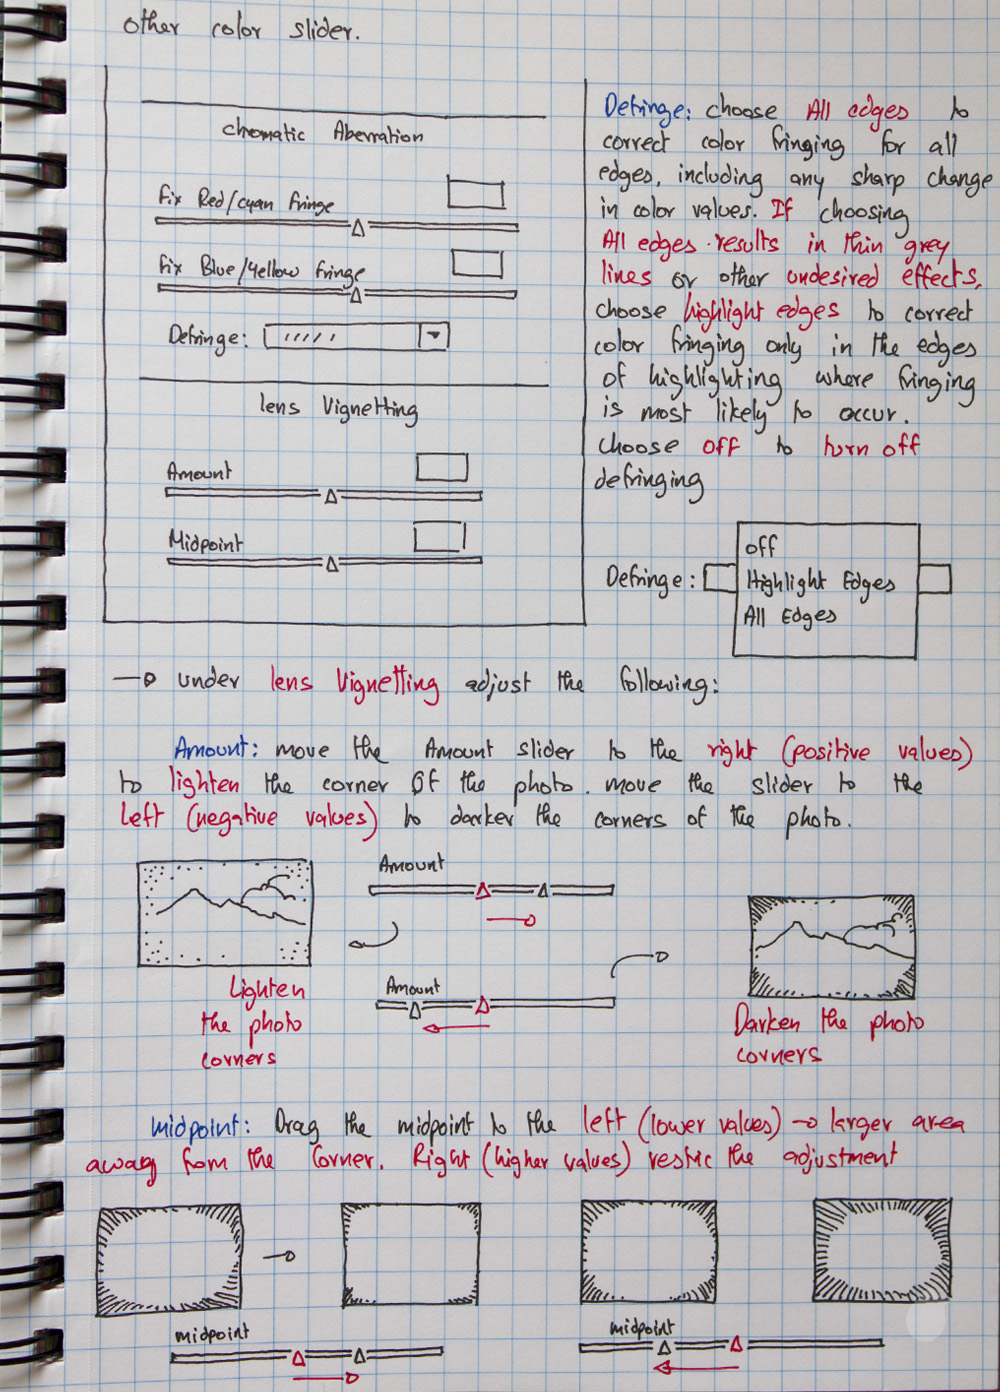 other color slider.
Chromatic Aberration
Fix Red/cyan fringe
Fix Blue/Yellow fringe
Defringe:
lens Vignetting
Amount
Midpoint
Defringe: choose All edges to
correct color fringing for all
edges, including any sharp change
in color values. If choosing
All edges results in thin grey
lines or other undesired effects,
choose highlight edges to correct
color fringing only in the edges
of highlighting where fringing
is most likely to occur.
choose off to turn off
defringing
off
Defringe: Highlight Edges
All Edges
under lens Vignetting adjust the following:
Amount: move the Amount slider to the right (positive values)
to lighten the corner of the photo. move the slider to the
Left (negative values) to darker the corners of the photo.
Amount
Amount
Lighten
the photo
corners
Darken the photo
corners
midpoint: Drag the midpoint to the left (lower values) → larger area
away from the Corner. Right (higher values) restric the adjustment
midpoint
midpoint